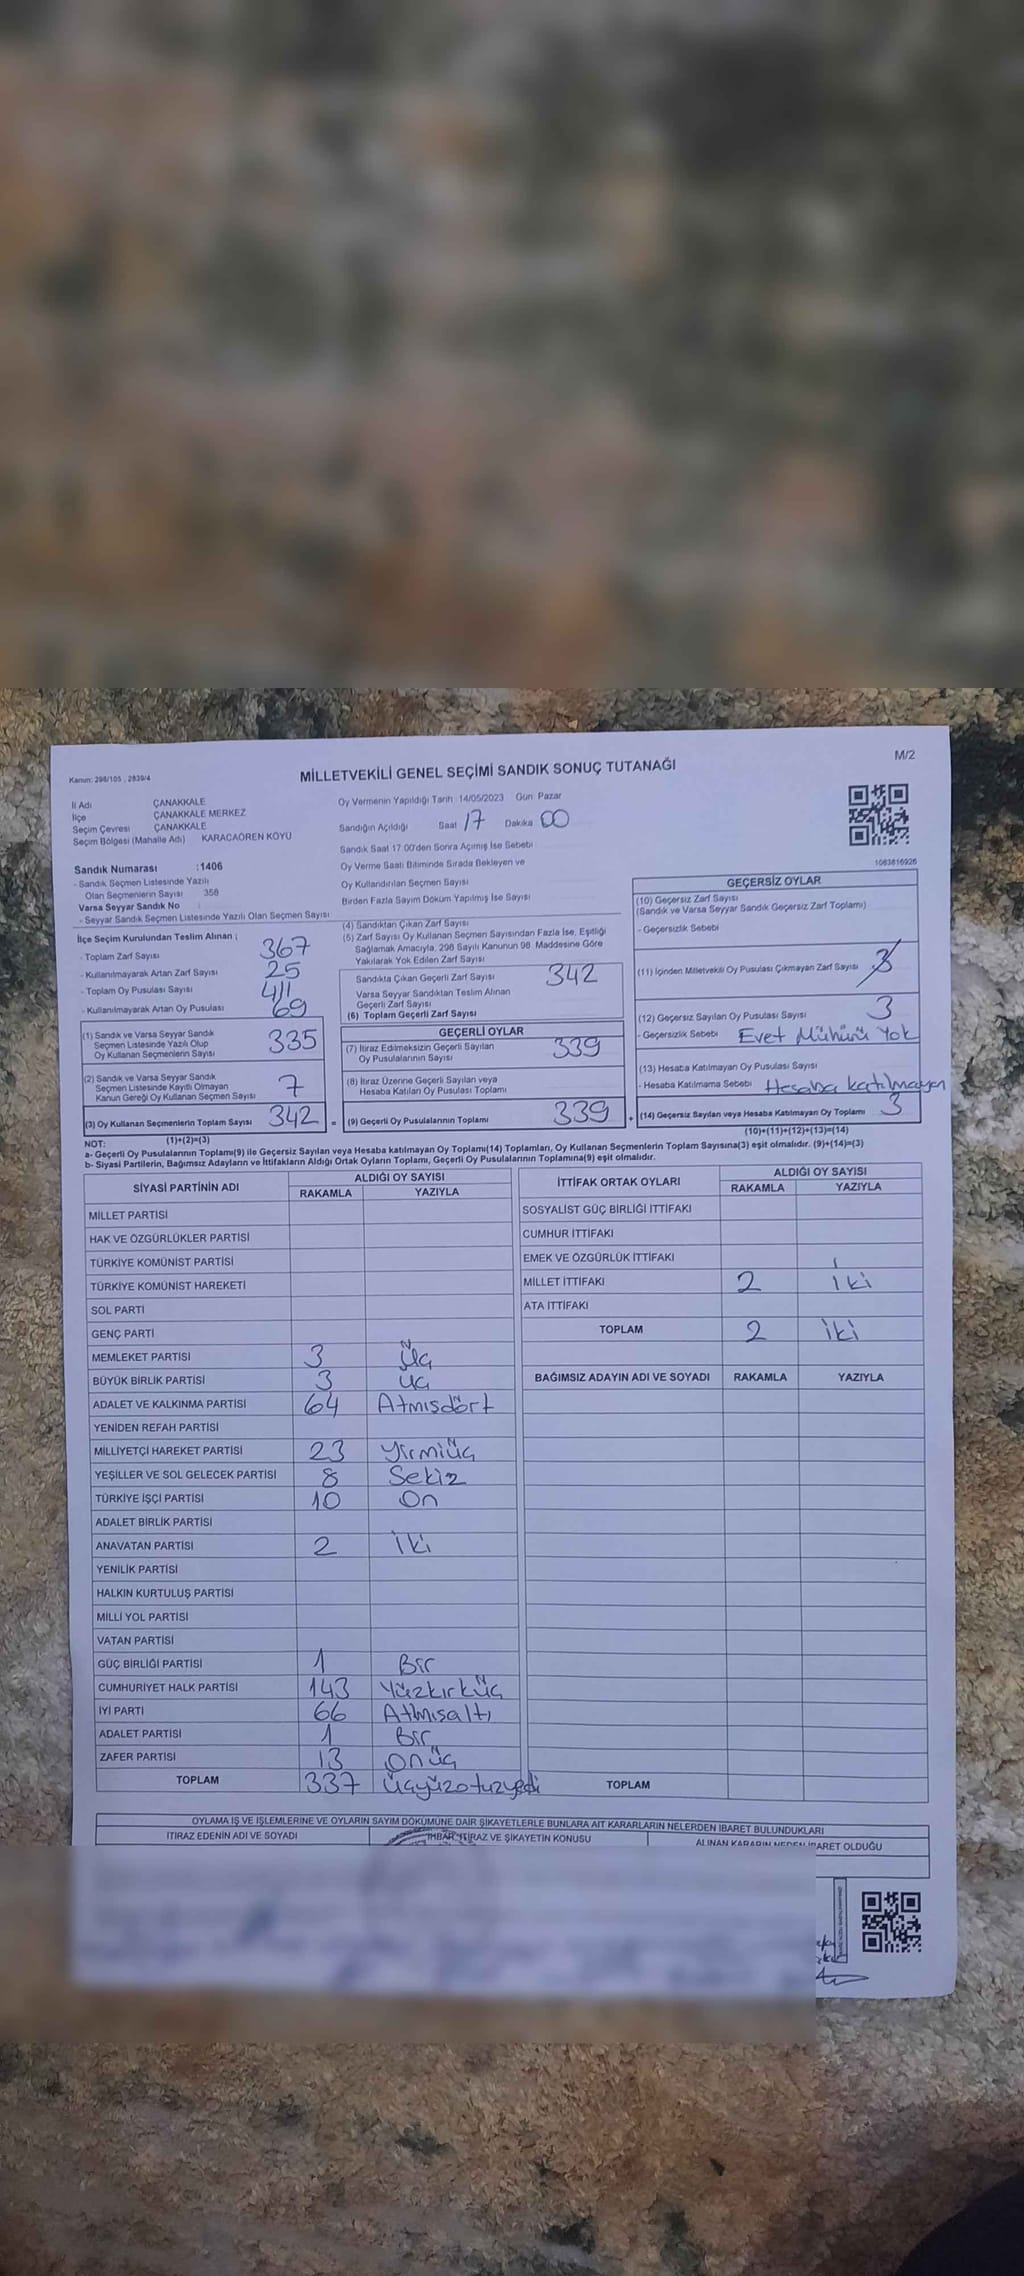 M/2
Kanun: 298/105 , 2839/4
MİLLETVEKİLİ GENEL SEÇİMİ SANDIK SONUÇ TUTANAĞI
İl Adı ÇANAKKALE
İlçe ÇANAKKALE MERKEZ
Seçim Çevresi ÇANAKKALE
Seçim Bölgesi (Mahalle Adı) KARACAÖREN KÖYÜ
Oy Vermenin Yapıldığı Tarih 14/05/2023 Gün Pazar
Sandığın Açıldığı Saat 17 Dakika 00
Sandık Saat 17.00'den Sonra Açımış İse Sebebi
Oy Verme Saati Bitiminde Sırada Bekleyen ve
Oy Kullandırılan Seçmen Sayısı
Birden Fazla Sayım Döküm Yapılmış İse Sayısı
1083816926
Sandık Numarası :1406
- Sandık Seçmen Listesinde Yazılı
Olan Seçmenlerin Sayısı 358
Varsa Seyyar Sandık No
- Seyyar Sandık Seçmen Listesinde Yazılı Olan Seçmen Sayısı
İlçe Seçim Kurulundan Teslim Alınan ;
- Toplam Zarf Sayısı 367
- Kullanılmayarak Artan Zarf Sayısı 25
- Toplam Oy Pusulası Sayısı 411
- Kullanılmayarak Artan Oy Pusulası 69
(1) Sandık ve Varsa Seyyar Sandık
Seçmen Listesinde Yazılı Olup
Oy Kullanan Seçmenlerin Sayısı 335
(2) Sandık ve Varsa Seyyar Sandık
Seçmen Listesinde Kayıtlı Olmayan
Kanun Gereği Oy Kullanan Seçmen Sayısı 7
(3) Oy Kullanan Seçmenlerin Toplam Sayısı 342 =
(1)+(2)=(3)
(4) Sandıktan Çıkan Zarf Sayısı
(5) Zarf Sayısı Oy Kullanan Seçmen Sayısından Fazla İse, Eşitliği
Sağlamak Amacıyla, 298 Sayılı Kanunun 98. Maddesine Göre
Yakılarak Yok Edilen Zarf Sayısı
Sandıkta Çıkan Geçerli Zarf Sayısı 342
Varsa Seyyar Sandıktan Teslim Alınan
Geçerli Zarf Sayısı
(6) Toplam Geçerli Zarf Sayısı
GEÇERLİ OYLAR
(7) İtiraz Edilmeksizin Geçerli Sayılan
Oy Pusulalarının Sayısı 339
(8) İtiraz Üzerine Geçerli Sayılan veya
Hesaba Katılan Oy Pusulaları Toplamı
(9) Geçerli Oy Pusulalarının Toplamı 339 +
GEÇERSİZ OYLAR
(10) Geçersiz Zarf Sayısı
(Sandık ve Varsa Seyyar Sandık Geçersiz Zarf Toplamı)
- Geçersizlik Sebebi
(11) İçinden Milletvekili Oy Pusulası Çıkmayan Zarf Sayısı 3
(12) Geçersiz Sayılan Oy Pusulası Sayısı 3
- Geçersizlik Sebebi Evet Mühürü Yok
(13) Hesaba Katılmayan Oy Pusulası Sayısı
- Hesaba Katılmama Sebebi Hesaba katılmayan
(14) Geçersiz Sayılan veya Hesaba Katılmayan Oy Toplamı 3
(10)+(11)+(12)+(13)=(14)
NOT:
a- Geçerli Oy Pusulalarının Toplamı(9) ile Geçersiz Sayılan veya Hesaba katılmayan Oy Toplamı(14) Toplamları, Oy Kullanan Seçmenlerin Toplam Sayısına(3) eşit olmalıdır. (9)+(14)=(3)
b- Siyasi Partilerin, Bağımsız Adayların ve İttifakların Aldığı Ortak Oyların Toplamı, Geçerli Oy Pusulalarının Toplamına(9) eşit olmalıdır.
SİYASİ PARTİNİN ADI ALDIĞI OY SAYISI
RAKAMLA YAZIYLA
MİLLET PARTİSİ
HAK VE ÖZGÜRLÜKLER PARTİSİ
TÜRKİYE KOMÜNİST PARTİSİ
TÜRKİYE KOMÜNİST HAREKETİ
SOL PARTİ
GENÇ PARTİ
MEMLEKET PARTİSİ 3 Üç
BÜYÜK BİRLİK PARTİSİ 3 üç
ADALET VE KALKINMA PARTİSİ 64 Atmışdört
YENİDEN REFAH PARTİSİ
MİLLİYETÇİ HAREKET PARTİSİ 23 Yirmiüç
YEŞİLLER VE SOL GELECEK PARTİSİ 8 Sekiz
TÜRKİYE İŞÇİ PARTİSİ 10 On
ADALET BİRLİK PARTİSİ
ANAVATAN PARTİSİ 2 İki
YENİLİK PARTİSİ
HALKIN KURTULUŞ PARTİSİ
MİLLİ YOL PARTİSİ
VATAN PARTİSİ
GÜÇ BİRLİĞİ PARTİSİ 1 Bir
CUMHURİYET HALK PARTİSİ 143 Yüzkırküç
İYİ PARTİ 66 Atmışaltı
ADALET PARTİSİ 1 Bir
ZAFER PARTİSİ 13 onüç
TOPLAM 337 Üçyüzotuzyedi
İTTİFAK ORTAK OYLARI ALDIĞI OY SAYISI
RAKAMLA YAZIYLA
SOSYALİST GÜÇ BİRLİĞİ İTTİFAKI
CUMHUR İTTİFAKI
EMEK VE ÖZGÜRLÜK İTTİFAKI
MİLLET İTTİFAKI 2 iki
ATA İTTİFAKI
TOPLAM 2 iki
BAĞIMSIZ ADAYIN ADI VE SOYADI RAKAMLA YAZIYLA
TOPLAM
OYLAMA İŞ VE İŞLEMLERİNE VE OYLARIN SAYIM DÖKÜMÜNE DAİR ŞİKAYETLERLE BUNLARA AİT KARARLARIN NELERDEN İBARET BULUNDUKLARI
İTİRAZ EDENİN ADI VE SOYADI İHBAR, İTİRAZ VE ŞİKAYETİN KONUSU ALINAN KARARIN NEDEN İBARET OLDUĞU